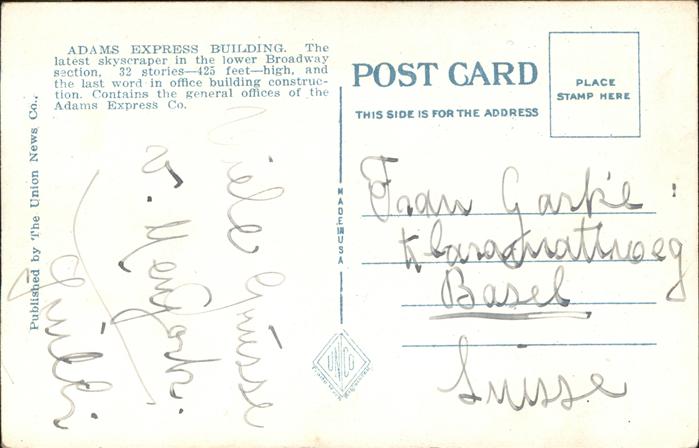 ADAMS EXPRESS BUILDING. The
latest skyscraper in the lower Broadway
section, 32 stories—425 feet—high, and
the last word in office building construc-
tion. Contains the general offices of the
Adams Express Co.
Published by The Union News Co.,
Viele Grüsse
v. New York.
POST CARD
THIS SIDE IS FOR THE ADDRESS
PLACE
STAMP HERE
MADE IN USA
Frau
Basel
Suisse